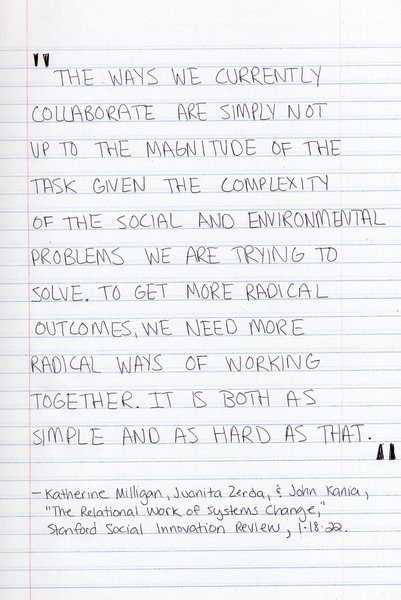 "THE WAYS WE CURRENTLY
COLLABORATE ARE SIMPLY NOT
UP TO THE MAGNITUDE OF THE
TASK GIVEN THE COMPLEXITY
OF THE SOCIAL AND ENVIRONMENTAL
PROBLEMS WE ARE TRYING TO
SOLVE. TO GET MORE RADICAL
OUTCOMES, WE NEED MORE
RADICAL WAYS OF WORKING
TOGETHER. IT IS BOTH AS
SIMPLE AND AS HARD AS THAT."
— Katherine Milligan, Juanita Zerda, & John Kania,
"The Relational Work of Systems Change,"
Stanford Social Innovation Review, 1-18-22.